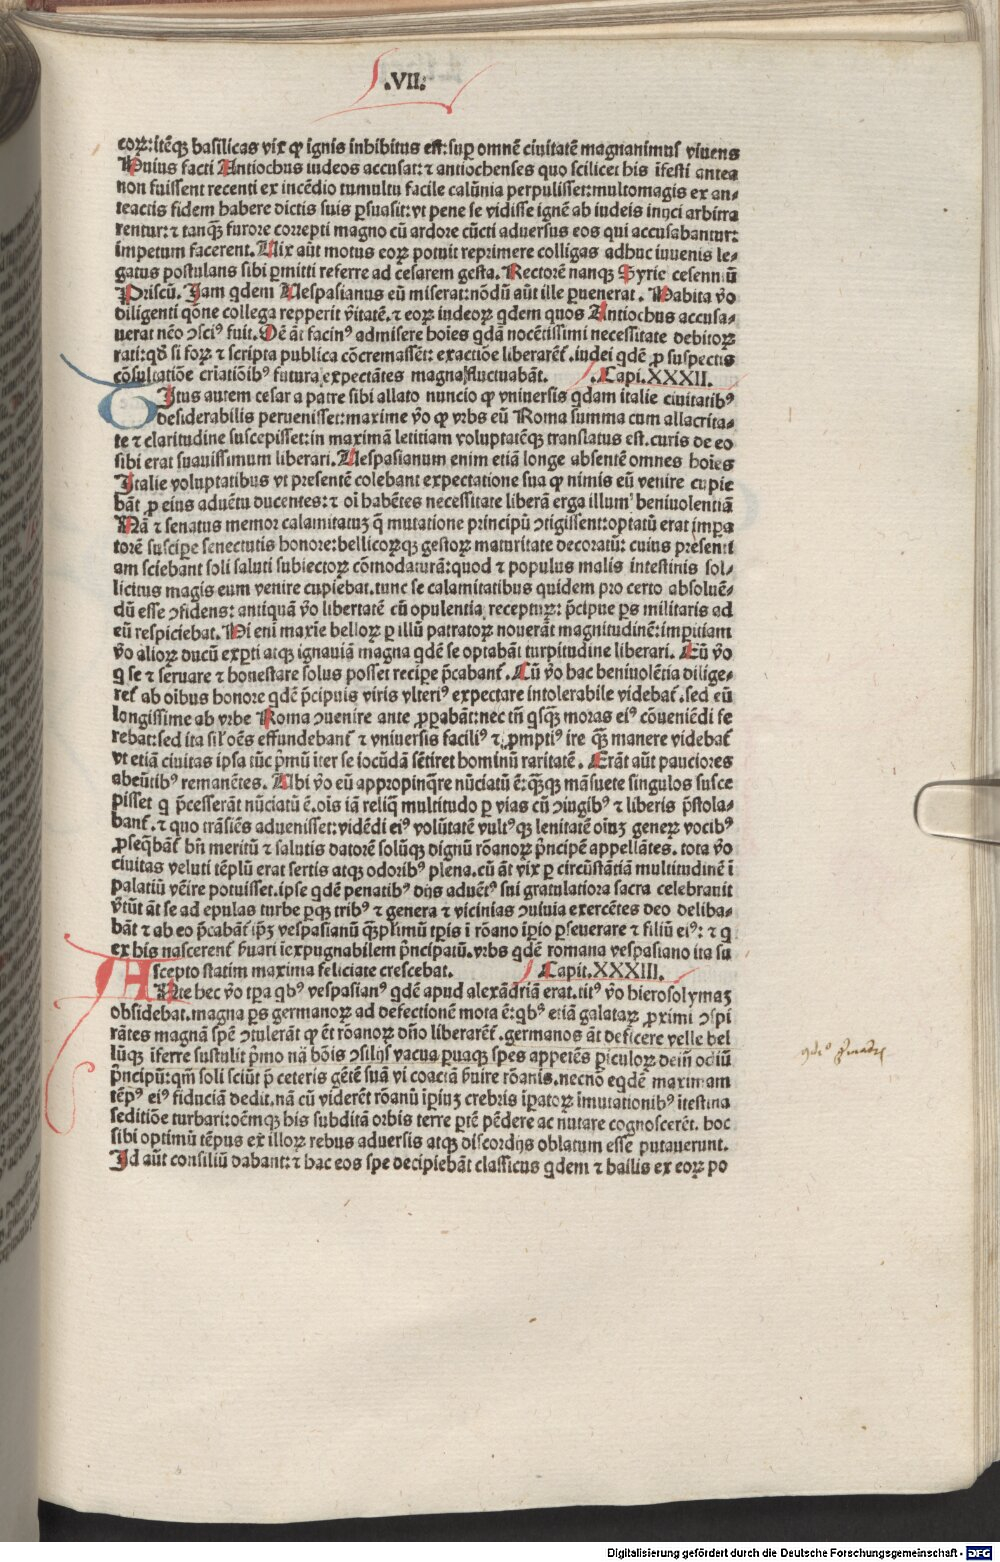 .VII.
eoꝝ: itẽqꝫ basilicas vix ꝙ ignis inhibitus est: sup omnẽ ciuitatẽ magnanimus viuens
Huius facti Antiochus iudeos accusat: ⁊ antiochenses quo scilicet his ĩfesti antea
non fuissent recenti ex incẽdio tumultu facile calũnia perpulisset: multomagis ex an⸗
teactis fidem habere dictis suis ꝑsuasit: vt pene se vidisse ignẽ ab iudeis inijci arbitra
rentur: ⁊ tanqꝫ furore correpti magno cũ ardore cũcti aduersus eos qui accusabantur:
impetum facerent. Uix aũt motus eoꝝ potuit reprimere colligas adhuc iuuenis le⸗
gatus postulans sibi ꝑmitti referre ad cesarem gesta. Rectorẽ nanqꝫ Syrie cesenniũ
Priscũ. Iam qdem Uespasianus eũ miserat: nõdũ aũt ille ꝑuenerat. Habita ṽo
diligenti qõne collega repperit ṽitatẽ. ⁊ eoꝝ iudeoꝝ qdem quos Antiochus accusa⸗
uerat nẽo ↄsciꝰ fuit. Oẽ ãt facinꝰ admisere hoĩes qdã nocẽtissimi necessitate debitoꝝ
rati: qđ si foꝝ ⁊ scripta publica cõcremassẽt: exactiõe liberarẽt̃. iudei qdẽ ꝓ suspectis
cõsultatiõe criatiõibꝰ futura expectãtes magna fluctuabãt. .Capi. XXXII.
TItus autem cesar a patre sibi allato nuncio ꝙ vniuersis qdam italie ciuitatibꝰ
desiderabilis peruenisset: maxime ṽo ꝙ vrbs eũ Roma summa cum allacrita⸗
te ⁊ claritudine suscepisset: in maximã letitiam voluptatẽqꝫ translatus est. curis de eo
sibi erat suauissimum liberari. Uespasianum enim etiã longe absentẽ omnes hoĩes
Italie voluptatibus vt presentẽ colebant expectatione sua ꝙ nimis eũ venire cupie
bãt ꝓ eius aduẽtu ducentes: ⁊ oĩ habẽtes necessitate liberã erga illum beniuolentiã
Nã ⁊ senatus memor calamitatuꝫ q̃ mutatione principũ ↄtigissent: optatũ erat imꝑa
torẽ suscipe senectutis honore: bellicoꝝqꝫ gestoꝝ maturitate decoratũ: cuius presenti
am sciebant soli saluti subiectoꝝ cõmodaturã: quod ⁊ populus malis intestinis sol⸗
licitus magis eum venire cupiebat. tunc se calamitatibus quidem pro certo absoluẽ⸗
dũ esse ↄfidens: antiquã ṽo libertatẽ cũ opulentia recepturꝝ: p̃cipue ꝑs militaris ad
eũ respiciebat. Hi eni maxĩe belloꝝ ꝑ illũ patratoꝝ nouerãt magnitudinẽ: imꝑitiam
ṽo alioꝝ ducũ exꝑti atqꝫ ignauiã magna qdẽ se optabãt turpitudine liberari. Eũ ṽo
q se ⁊ seruare ⁊ honestare solus posset recipe p̃cabant̃. Cũ ṽo hac beniuolẽtia dilige⸗
ret̃ ab oĩbus honore qdẽ p̃cipuis viris vlteriꝰ expectare intolerabile videbat̃. sed eũ
longissime ab vrbe Roma ↄuenire ante ꝓꝑabãt: nec tñ qsqꝫ moras eiꝰ cõueniẽdi fe
rebat: sed ita sil̃ oẽs effundebant̃ ⁊ vniuersis faciliꝰ ⁊ ꝓmptiꝰ ire qꝫ manere videbat̃
vt etiã ciuitas ipsa tũc p̃mũ iter se iocũdã sẽtiret hominũ raritatẽ. Erãt aũt pauciores
abeũtibꝰ remanẽtes. Ubi ṽo eũ appropinqre nũciatũ ẽ: qꝫqꝫ mãsuete singulos susce
pisset q p̃cesserãt nũciatũ ẽ. oĩs iã reliq̃ multitudo ꝑ vias cũ ↄiugibꝰ ⁊ liberis p̃stola⸗
bant̃. ⁊ quo trãsiẽs aduenisset: vidẽdi eiꝰ volũtatẽ vultꝰqꝫ lenitatẽ oĩuꝫ generꝝ vocibꝰ
ꝓseqbãt̃ bñ meritũ ⁊ salutis datorẽ solũqꝫ dignũ rõanoꝝ p̃ncipẽ appellãtes. tota ṽo
ciuitas veluti tẽplũ erat sertis atqꝫ odoribꝰ plena. cũ ãt vix ꝑ circũstãtiã multitudinẽ ĩ
palatiũ vẽire potuisset. ipse qdẽ penatibꝰ dijs aduẽtꝰ sui gratulatiora sacra celebrauit
ṽtũt ãt se ad epulas turbe ꝑqꝫ tribꝰ ⁊ genera ⁊ vicinias ↄuiuia exercẽtes deo deliba⸗
bãt ⁊ ab eo p̃cabãt̃ ip̃ꝫ vespasianũ qꝫplimũ tꝑis ĩ rõano ĩpio ꝑseuerare ⁊ filiũ eiꝰ: ⁊ q
ex his nascerent̃ p̃uari iexpugnabilem p̃ncipatũ. vrbs qdẽ romana vespasiano ita su
scepto statim maxima feliciate crescebat. Capit. XXXIII.
ANte hec ṽo tꝑa qbꝰ vespasianꝰ qdẽ apud alexãdriã erat. titꝰ ṽo hierosolymaꝫ
obsidebat. magna ꝑs germanoꝝ ad defectionẽ mota ẽ: qbꝰ etiã galataꝝ ꝓximi ↄspi
rãtes magnã spẽ ↄtulerãt ꝙ ẽt rõanoꝝ dño liberarẽt̃. germanos ãt deficere velle bel
lũqꝫ ĩferre sustulit p̃mo nã bõis ↄsilijs vacua ꝑuaqꝫ spes appetẽs ꝑiculoꝝ dein̄ odiũ
p̃ncipũ: qm̃ soli sciũt p̃ ceteris gẽtẽ suã vi coactã p̃uire rõanis. necnõ eqdẽ maximam
tẽpꝰ eiꝰ fiduciã dedit. nã cũ viderẽt rõanũ ĩpiuꝫ crebris ĩpatoꝝ ĩmutationibꝰ ĩtestina
seditiõe turbari: oẽmqꝫ his subditã orbis terre ꝑtẽ pẽdere ac nutare cognoscerẽt. hoc
sibi optimũ tẽpus ex illoꝝ rebus aduersis atqꝫ discordijs oblatum esse putauerunt.
Id aũt consiliũ dabant: ⁊ hac eos spe decipiebãt classicus qdem ⁊ bailis ex eoꝝ po
Digitalisierung gefördert durch die Deutsche Forschungsgemeinschaft - DFG